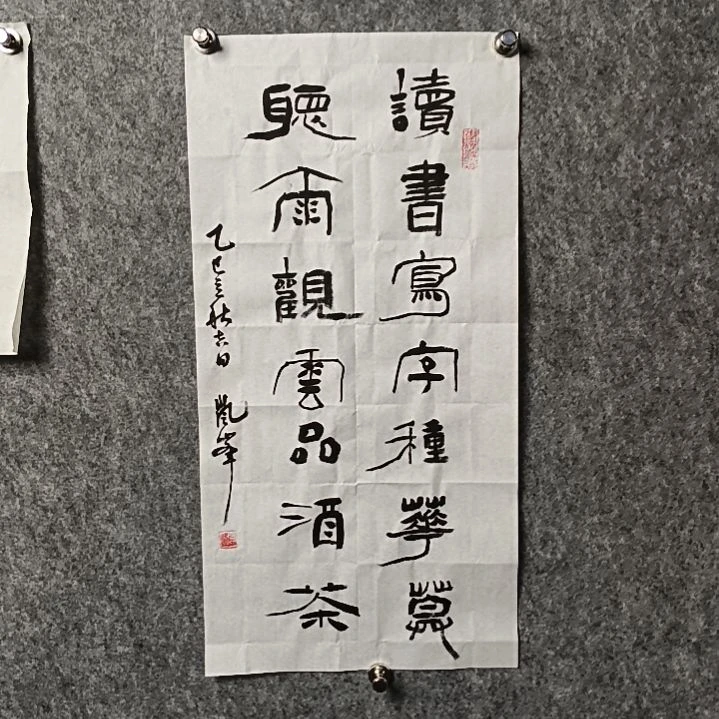 讀書寫字種華草
聽雨觀雲品酒茶
乙巳立秋吉日 凱峯